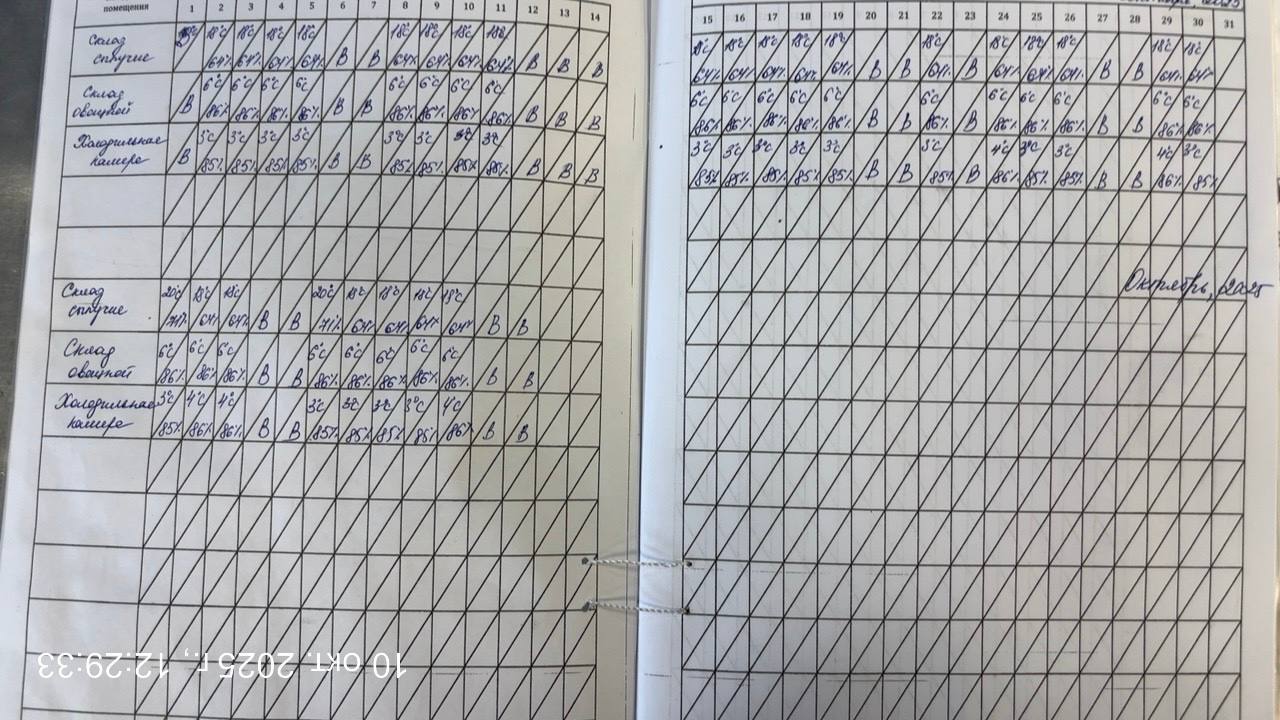 помещения 1 2 3 4 5 6 7 8 9 10 11 12 13 14
Склад 18°c 18°c 18°c 18°c 18°c 18°c 18°c 18°c
сыпучие 64% 64% 64% 64% В В 64% 64% 64% 64% В В В
Склад 6°c 6°c 6°c 6c 6°c 6°c 6°c 6°c
овощной В 86% 86% 86% 86% В В 86% 86% 86% 86% В В В
Холодильная 3°c 3°c 3°c 3°c 3°c 3°c 3°c 3°c
камера В 85% 85% 85% 85% В В 85% 85% 85% 85% В В В
Склад 20°c 18°c 18°c 20°c 18°c 18°c 18°c 18°c
сыпучие 71% 64% 64% В В 71% 64% 64% 64% 64% В В
Склад 6°c 6°c 6°c 6°c 6°c 6°c 6°c 6°c
овощной 86% 86% 86% В В 86% 86% 86% 86% 86% В В
Холодильная 3°c 4°c 4°c 3°c 3°c 3°c 3°c 4°c
камера 85% 86% 86% В В 85% 85% 85% 85% 86% В В
2025
15 16 17 18 19 20 21 22 23 24 25 26 27 28 29 30 31
18°c 18°c 18°c 18°c 18°c 18°c 18°c 18°c 18°c 18°c 18°c
64% 64% 64% 64% 64% В В 64% В 64% 64% 64% В В 64% 64%
6°c 6°c 6°c 6°c 6°c 6°c 6°c 6°c 6°c 6°c 6°c
86% 86% 86% 86% 86% В В 86% В 86% 86% 86% В В 86% 86%
3°c 3°c 3°c 3°c 3°c 3°c 4°c 3°c 3°c 4°c 3°c
85% 85% 85% 85% 85% В В 85% В 86% 85% 85% В В 86% 85%
Октябрь, 2025
10 окт. 2025 г., 12:29:33